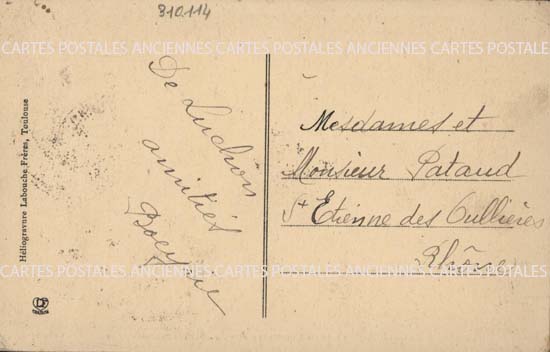 310114
CARTES POSTALES ANCIENNES CARTES POSTALES ANCIENNES CARTES POSTALES ANCIENNES
De Luchon
amitiés
Mesdames et
Monsieur Pataud
St Etienne des Oullières
Rhône
CARTES POSTALES ANCIENNES CARTES POSTALES ANCIENNES CARTES POSTALES ANCIENNES
Héliogravure Labouche Frères, Toulouse